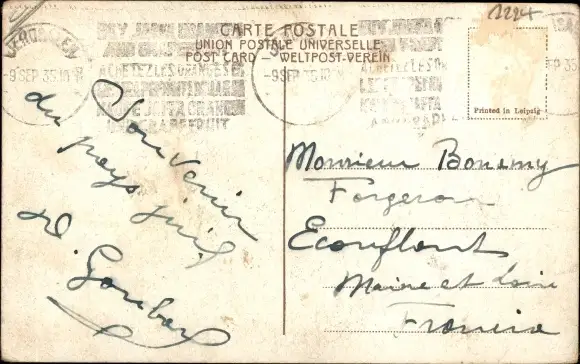 1224
CARTE POSTALE
UNION POSTALE UNIVERSELLE
POST CARD WELTPOST-VEREIN
JERUSALEM
-9 SEP 35
BUY JAFFA ORANGES
AND GRAPEFRUIT
ACHETEZ LES ORANGES ET
LES PAMPLEMOUSSES DE JAFFA
-9 SEP 35
Printed in Leipzig
Souvenir
du pays juif
Monsieur Bonemy
Forgeron
Ecouflant
Maine et Loire
France